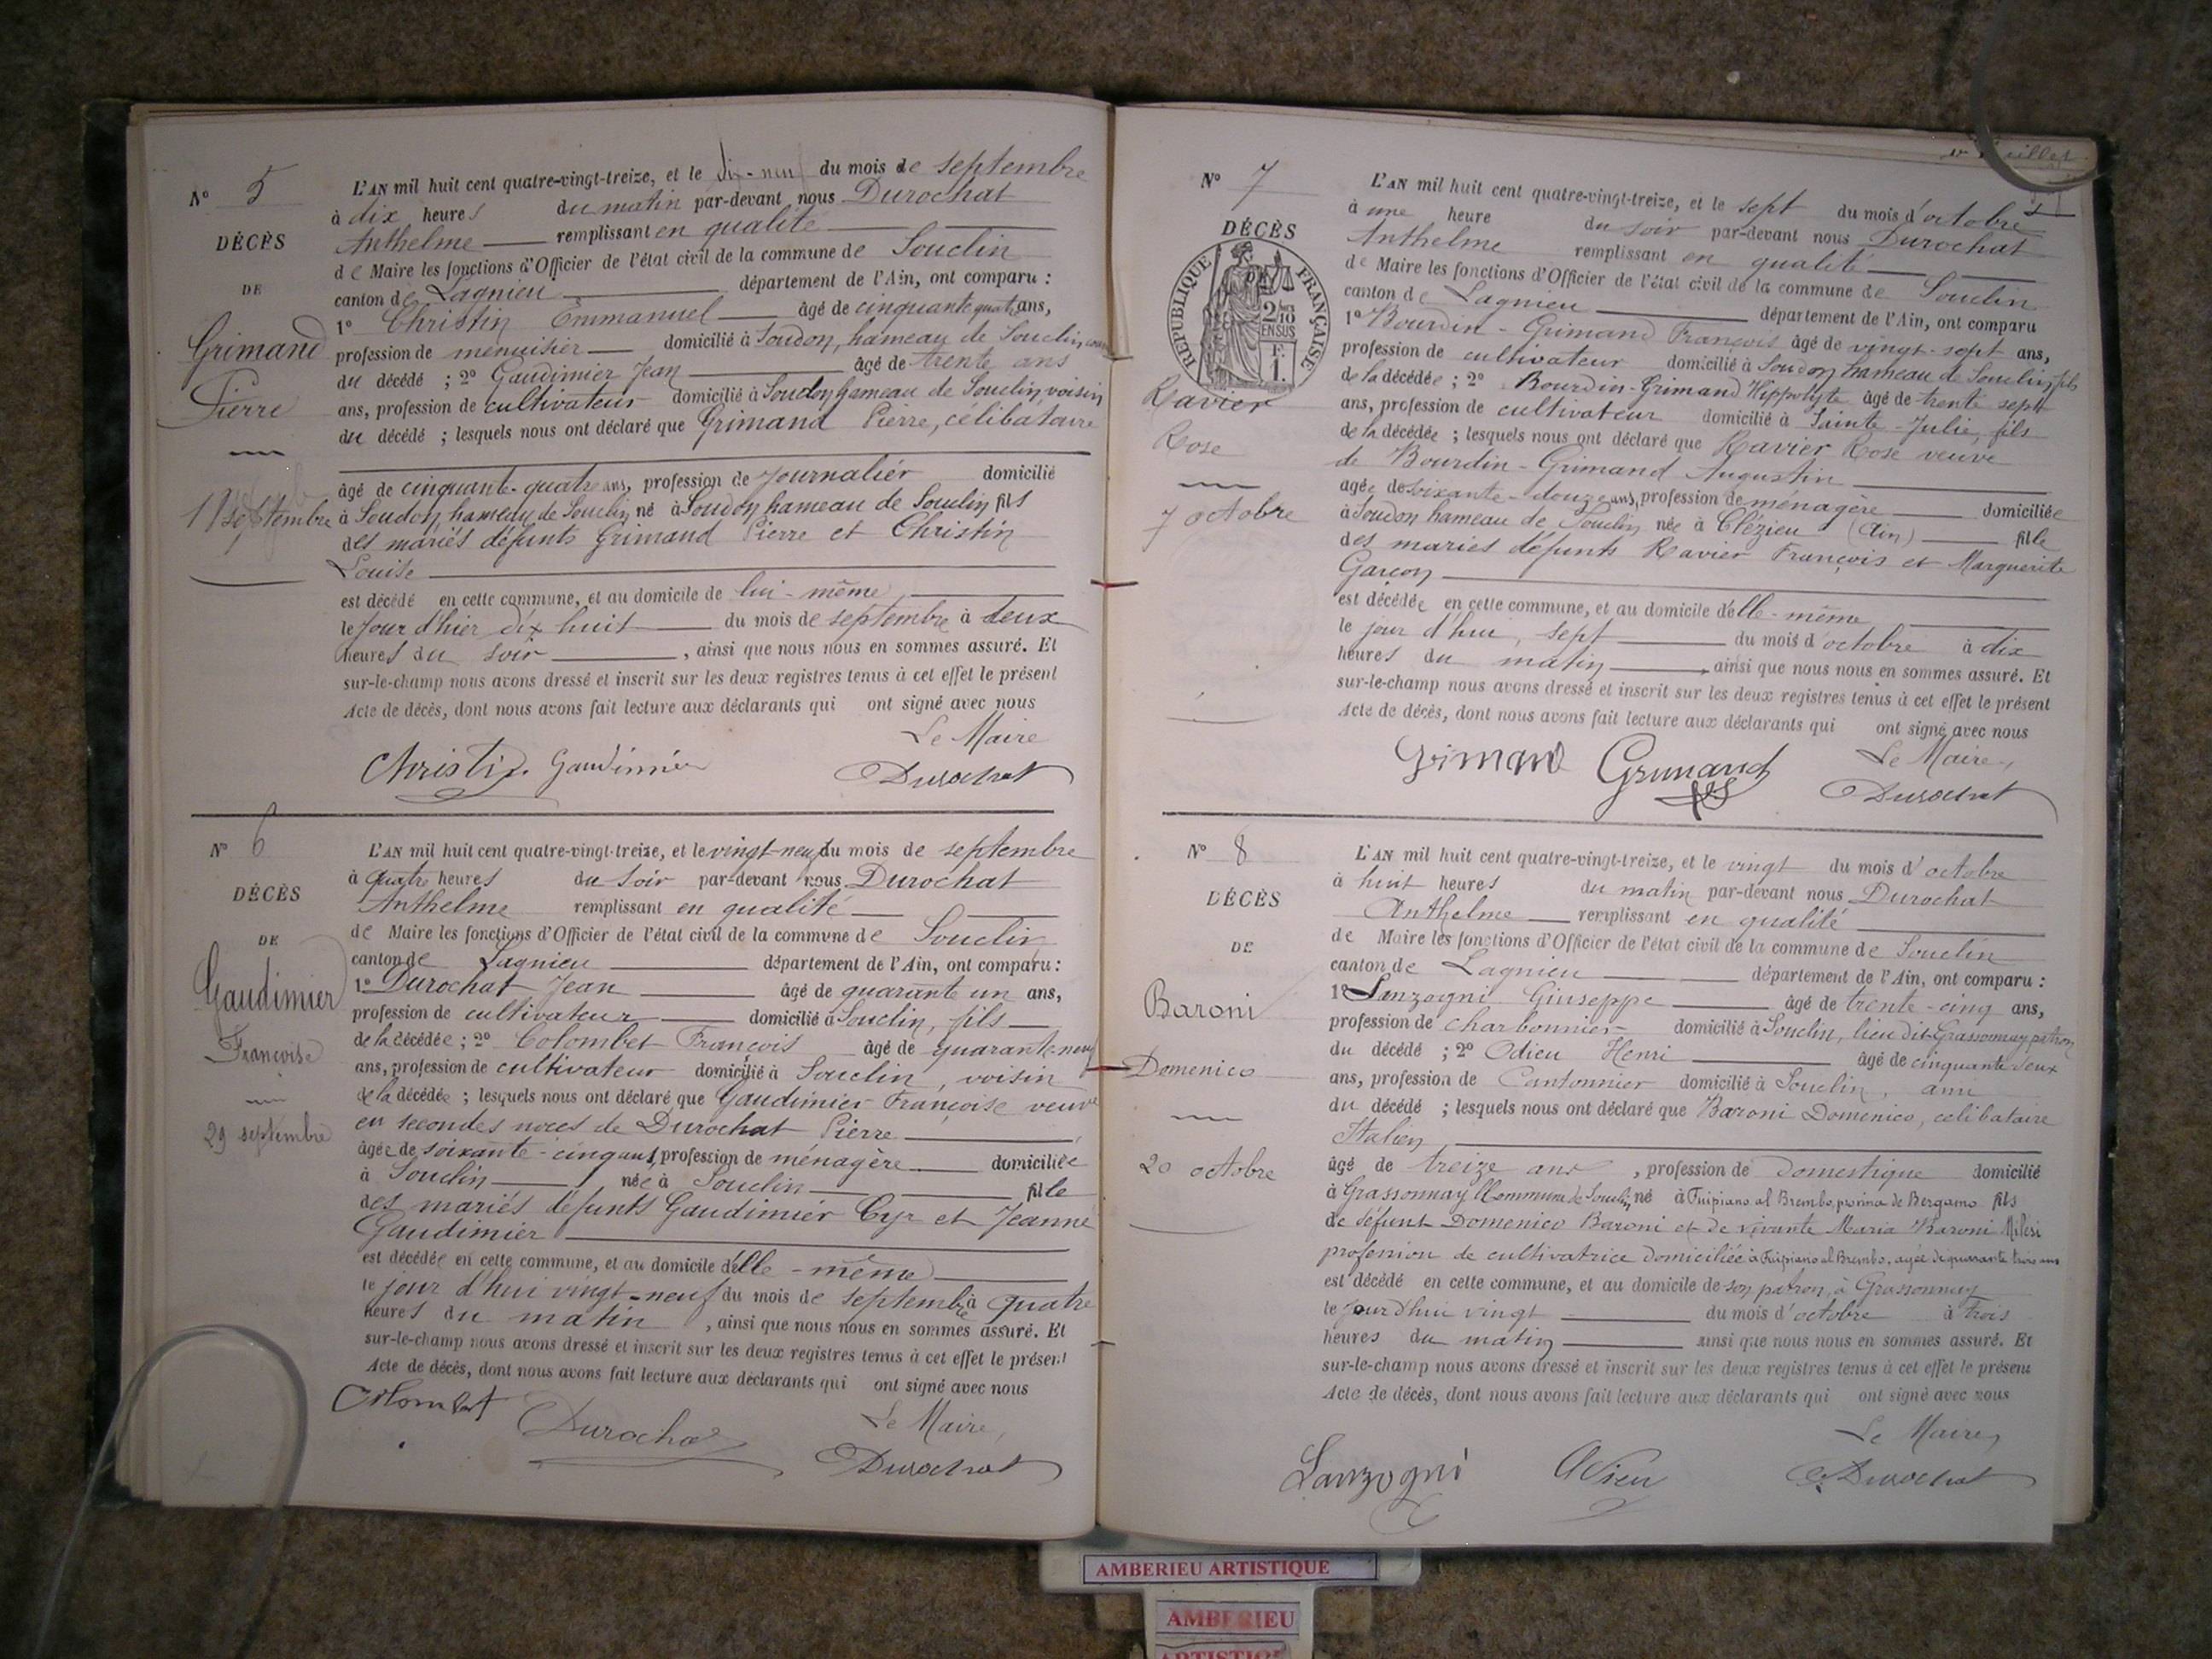 N° 5
DÉCÈS
DE
Grimand
Pierre
septembre
L'AN mil huit cent quatre-vingt-treize, et le dix-neuf du mois de septembre
à dix heures du matin par-devant nous Durochat
Anthelme remplissant en qualité
de Maire les fonctions d'Officier de l'état civil de la commune de Souclin
canton de Lagnieu département de l'Ain, ont comparu :
1° Christin Emmanuel âgé de cinquante quatre ans,
profession de menuisier domicilié à Soudon, hameau de Souclin,
du décédé ; 2° Gaudimier Jean âgé de trente ans
ans, profession de cultivateur domicilié à Soudon hameau de Souclin, voisin
du décédé ; lesquels nous ont déclaré que Grimand Pierre, célibataire
âgé de cinquante-quatre ans, profession de Journalier domicilié
à Soudon, hameau de Souclin, né à Soudon hameau de Souclin fils
des mariés défunts Grimand Pierre et Christin
Louise
est décédé en cette commune, et au domicile de lui-même
le jour d'hier dix huit du mois de septembre à deux
heures du soir , ainsi que nous nous en sommes assuré. Et
sur-le-champ nous avons dressé et inscrit sur les deux registres tenus à cet effet le présent
Acte de décès, dont nous avons fait lecture aux déclarants qui ont signé avec nous
Le Maire
Christin Gaudimier Durochat
N° 6
DÉCÈS
DE
Gaudimier
Françoise
29 septembre
L'AN mil huit cent quatre-vingt-treize, et le vingt-neuf du mois de septembre
à quatre heures du soir par-devant nous Durochat
Anthelme remplissant en qualité
de Maire les fonctions d'Officier de l'état civil de la commune de Souclin
canton de Lagnieu département de l'Ain, ont comparu :
1° Durochat Jean âgé de quarante un ans,
profession de cultivateur domicilié à Souclin, fils
de la décédée ; 2° Colombet François âgé de quarante neuf
ans, profession de cultivateur domicilié à Souclin, voisin
de la décédée ; lesquels nous ont déclaré que Gaudimier Françoise veuve
en secondes noces de Durochat Pierre
âgée de soixante-cinq ans, profession de ménagère domiciliée
à Souclin née à Souclin fille
des mariés défunts Gaudimier Cyr et Jeanne
Gaudimier
est décédée en cette commune, et au domicile d'elle-même
le jour d'hui vingt-neuf du mois de septembre à quatre
heures du matin , ainsi que nous nous en sommes assuré. Et
sur-le-champ nous avons dressé et inscrit sur les deux registres tenus à cet effet le présent
Acte de décès, dont nous avons fait lecture aux déclarants qui ont signé avec nous
Le Maire,
Colombet Durochat Durochat
N° 7
DÉCÈS
RÉPUBLIQUE FRANÇAISE
2/10
EN SUS
F.
1.
Ravier
Rose
7 octobre
L'AN mil huit cent quatre-vingt-treize, et le sept du mois d'octobre
à une heure du soir par-devant nous Durochat
Anthelme remplissant en qualité
de Maire les fonctions d'Officier de l'état civil de la commune de Souclin
canton de Lagnieu département de l'Ain, ont comparu
1° Bourdin-Grimand François âgé de vingt-sept ans,
profession de cultivateur domicilié à Soudon hameau de Souclin, fils
de la décédée ; 2° Bourdin-Grimand Hippolyte âgé de trente sept
ans, profession de cultivateur domicilié à Sainte-Julie, fils
de la décédée ; lesquels nous ont déclaré que Ravier Rose veuve
de Bourdin-Grimand Augustin
agée de soixante-douze ans, profession de ménagère domiciliée
à Soudon hameau de Souclin, née à Clézieu (Ain) fille
des mariés défunts Ravier François et Marguerite
Garçon
est décédée en cette commune, et au domicile d'elle-même
le jour d'hui, sept du mois d'octobre à dix
heures du matin , ainsi que nous nous en sommes assuré. Et
sur-le-champ nous avons dressé et inscrit sur les deux registres tenus à cet effet le présent
Acte de décès, dont nous avons fait lecture aux déclarants qui ont signé avec nous
Le Maire,
Grimand Grimand Durochat
N° 8
DÉCÈS
DE
Baroni
Domenico
20 octobre
L'AN mil huit cent quatre-vingt-treize, et le vingt du mois d'octobre
à huit heures du matin par-devant nous Durochat
Anthelme remplissant en qualité
de Maire les fonctions d'Officier de l'état civil de la commune de Souclin
canton de Lagnieu département de l'Ain, ont comparu :
1° Lanzogni Giuseppe âgé de trente-cinq ans,
profession de charbonnier domicilié à Souclin, lieu dit Grassonnay patron
du décédé ; 2° Odieu Henri âgé de cinquante deux
ans, profession de Cantonnier domicilié à Souclin, ami
du décédé ; lesquels nous ont déclaré que Baroni Domenico, célibataire
Italien
âgé de treize ans , profession de domestique domicilié
à Grassonnay Commune de Souclin, né à Fuipiano al Brembo, provinca de Bergamo fils
de défunt Domenico Baroni et de vivante Maria Baroni Milesi
profession de cultivatrice domiciliée à Fuipiano al Brembo, agée de quarante trois ans
est décédé en cette commune, et au domicile de son patron, à Grassonnay
le jourd'hui vingt du mois d'octobre à trois
heures du matin ainsi que nous nous en sommes assuré. Et
sur-le-champ nous avons dressé et inscrit sur les deux registres tenus à cet effet le présent
Acte de décès, dont nous avons fait lecture aux déclarants qui ont signé avec nous
Le Maire,
Lanzogni Odieu Durochat
AMBERIEU ARTISTIQUE
AMBERIEU
ARTISTIQUE